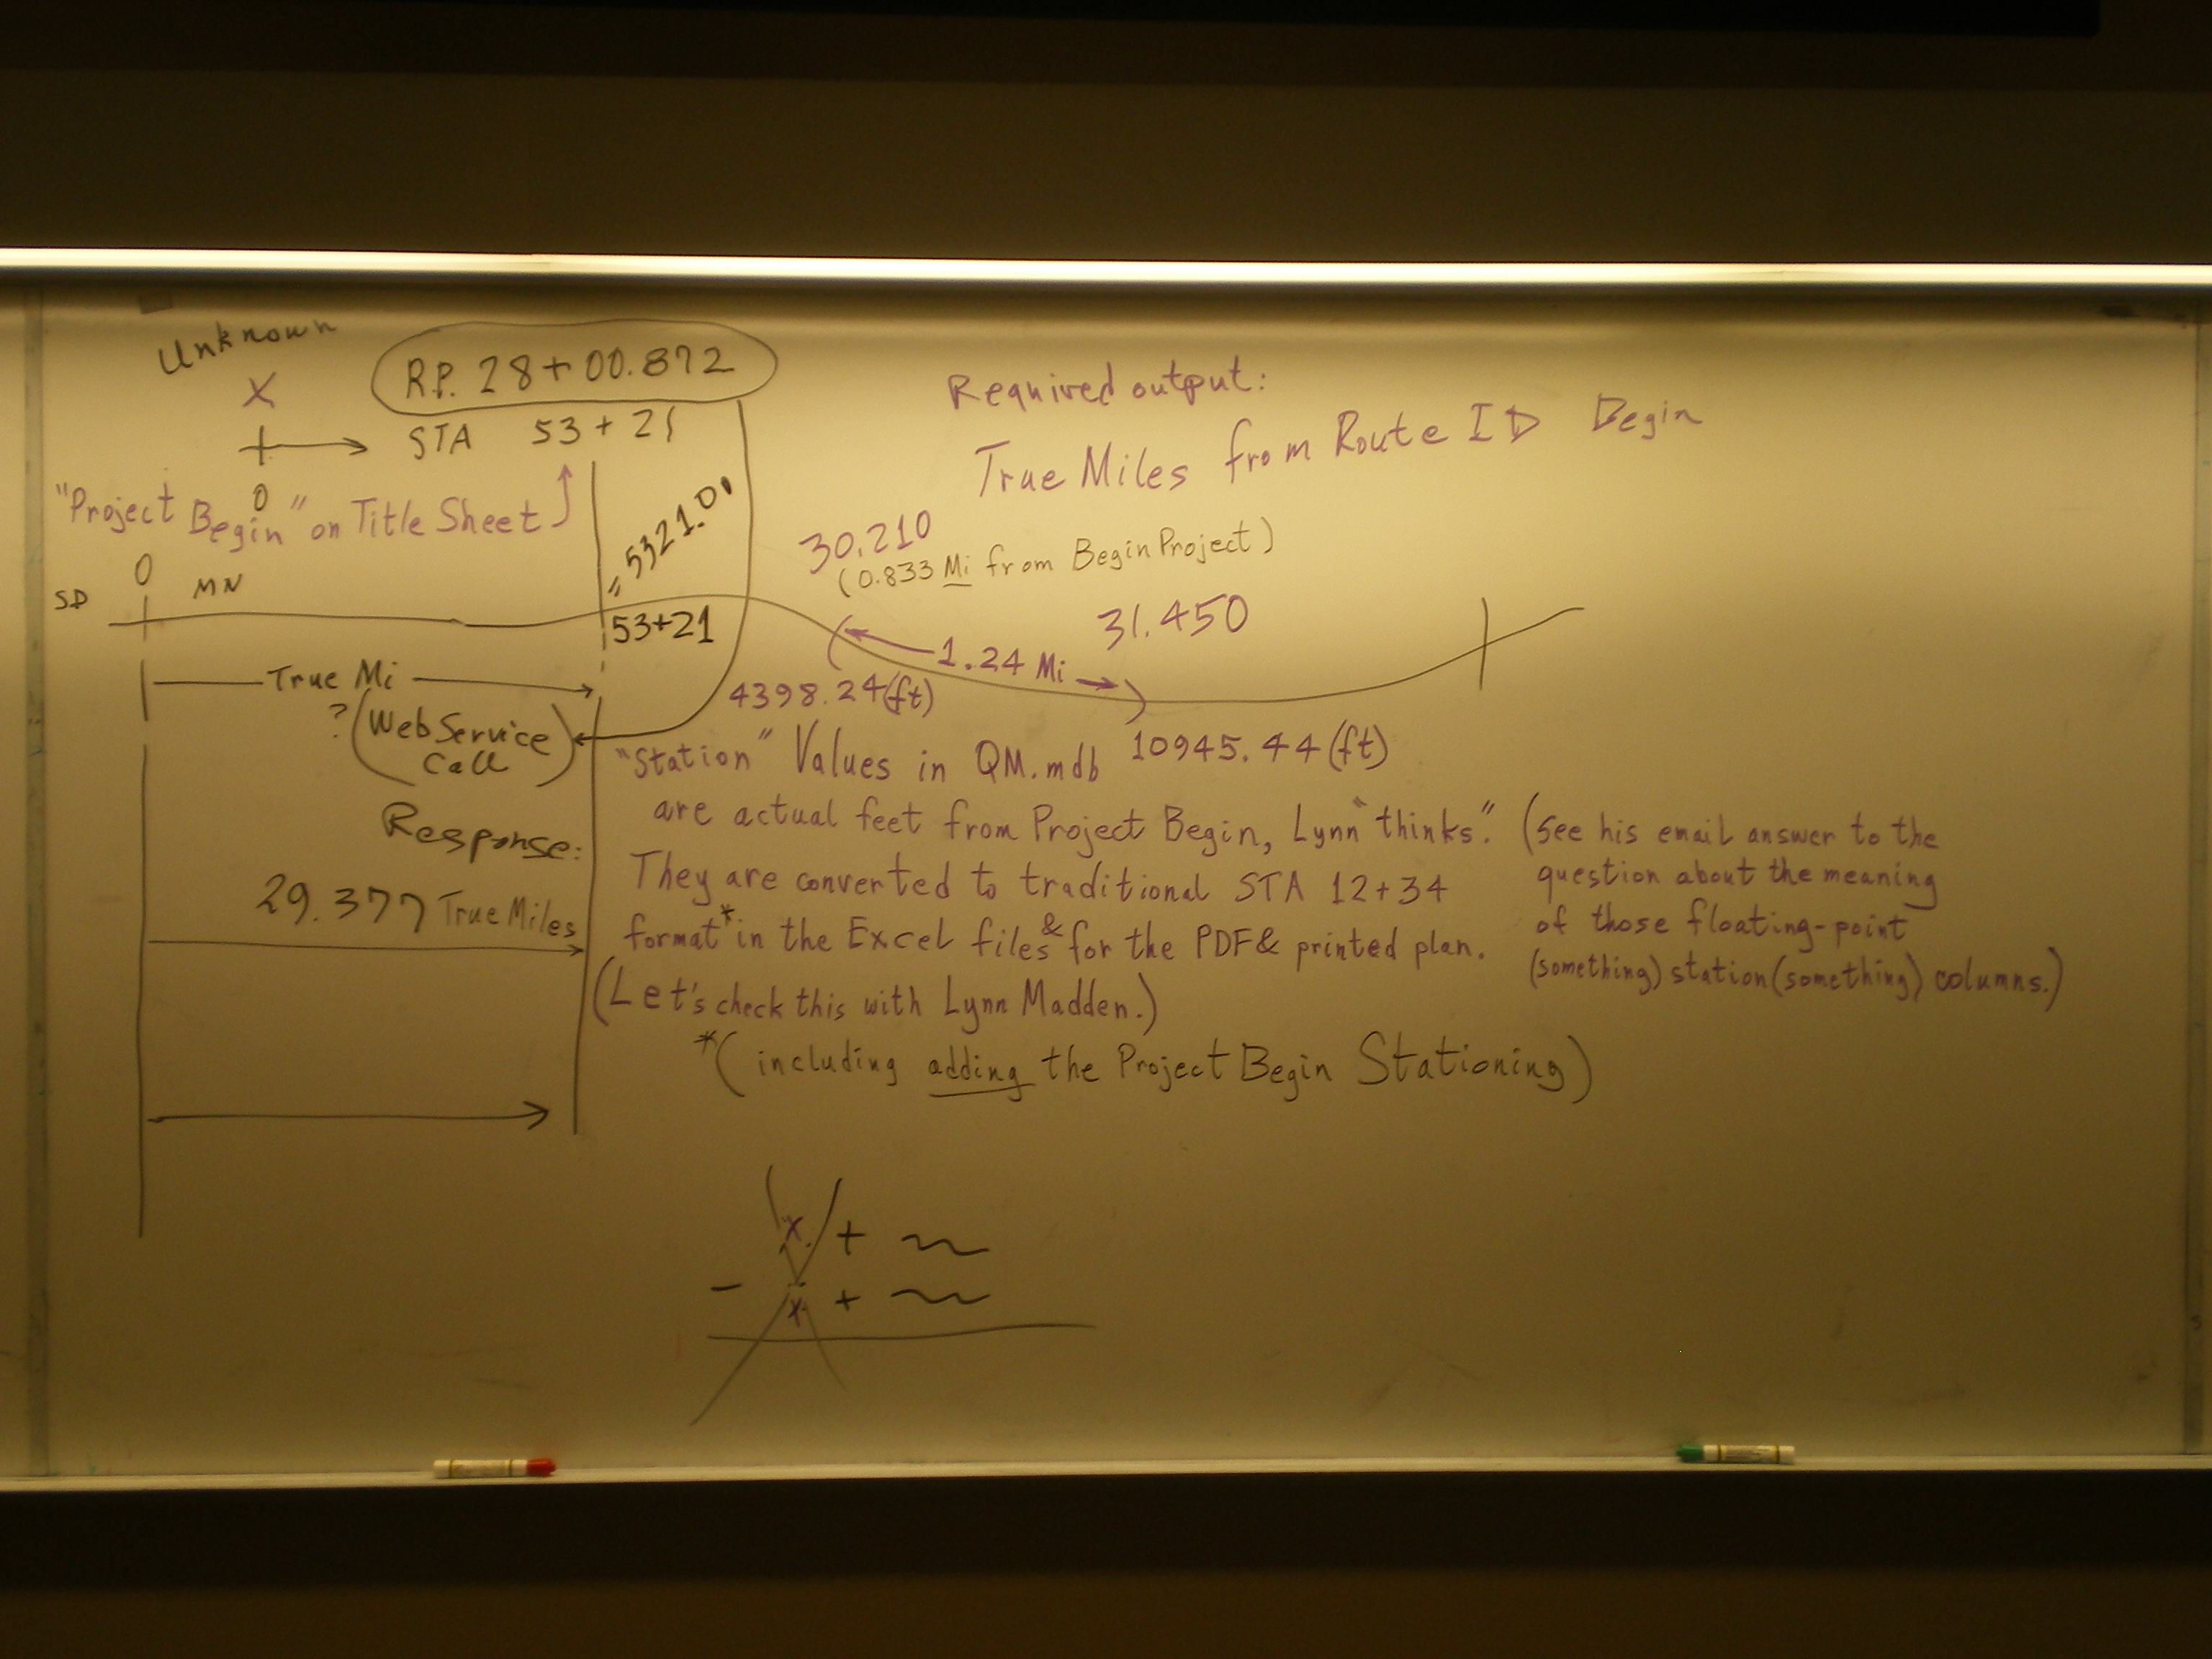 Unknown
X
R.P. 28+00.872
STA 53+21
0
"Project Begin" on Title Sheet
= 5321.0
53+21
0
SD MN
True Mi
? (Web Service Call)
Response:
29.377 True Miles
Required output:
True Miles from Route ID Begin
30.210
(0.833 Mi from Begin Project)
31.450
1.24 Mi
4398.24(ft)
10945.44(ft)
"Station" Values in QM.mdb
are actual feet from Project Begin, Lynn "thinks."
They are converted to traditional STA 12+34
format* in the Excel files & for the PDF & printed plan.
(Let's check this with Lynn Madden.)
*(including adding the Project Begin Stationing)
(see his email answer to the
question about the meaning
of those floating-point
(something) station (something) columns.)
x +
- x +